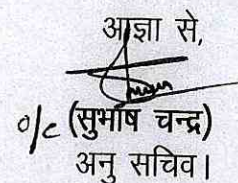 आज्ञा से,
o/c (सुभाष चन्द्र)
अनु सचिव।